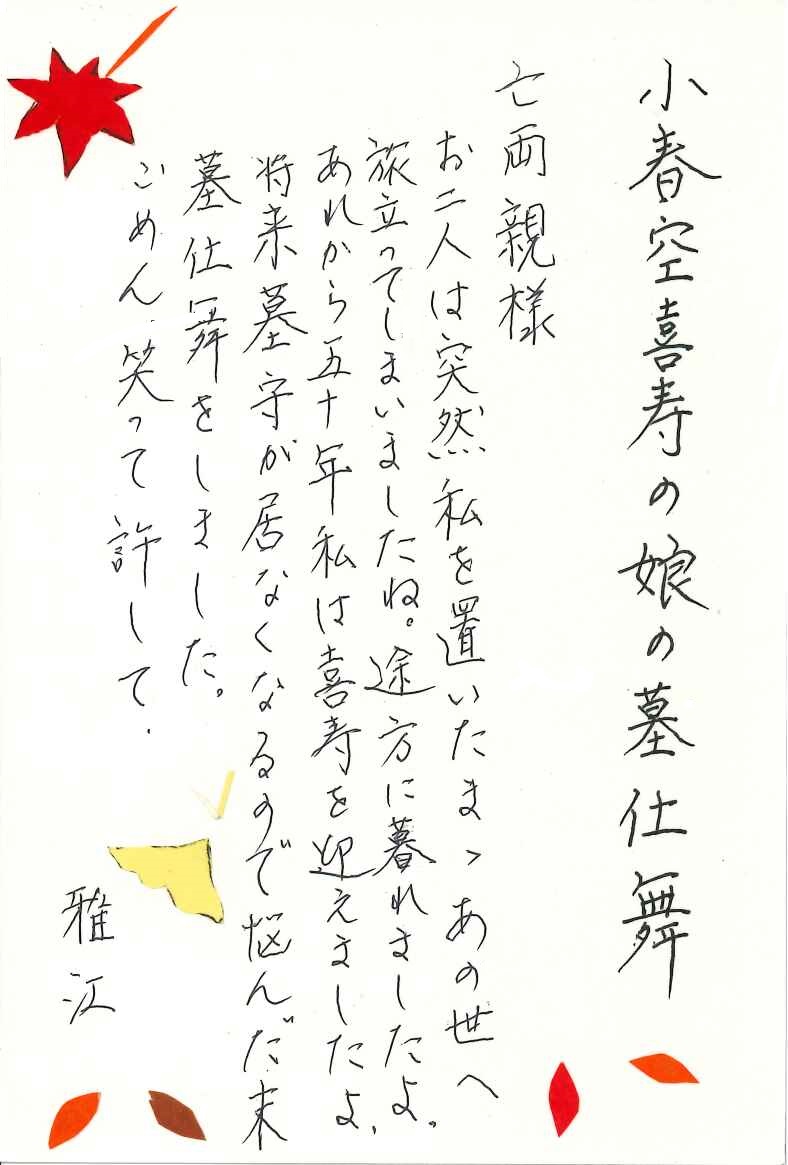 小春空喜寿の娘の墓仕舞
亡両親様
お二人は突然私を置いたまゝあの世へ
旅立ってしまいましたね。途方に暮れましたよ。
あれから五十年私は喜寿を迎えましたよ、
将来墓守が居なくなるので悩んだ末
墓仕舞をしました。
ごめん、笑って許して.
雅江